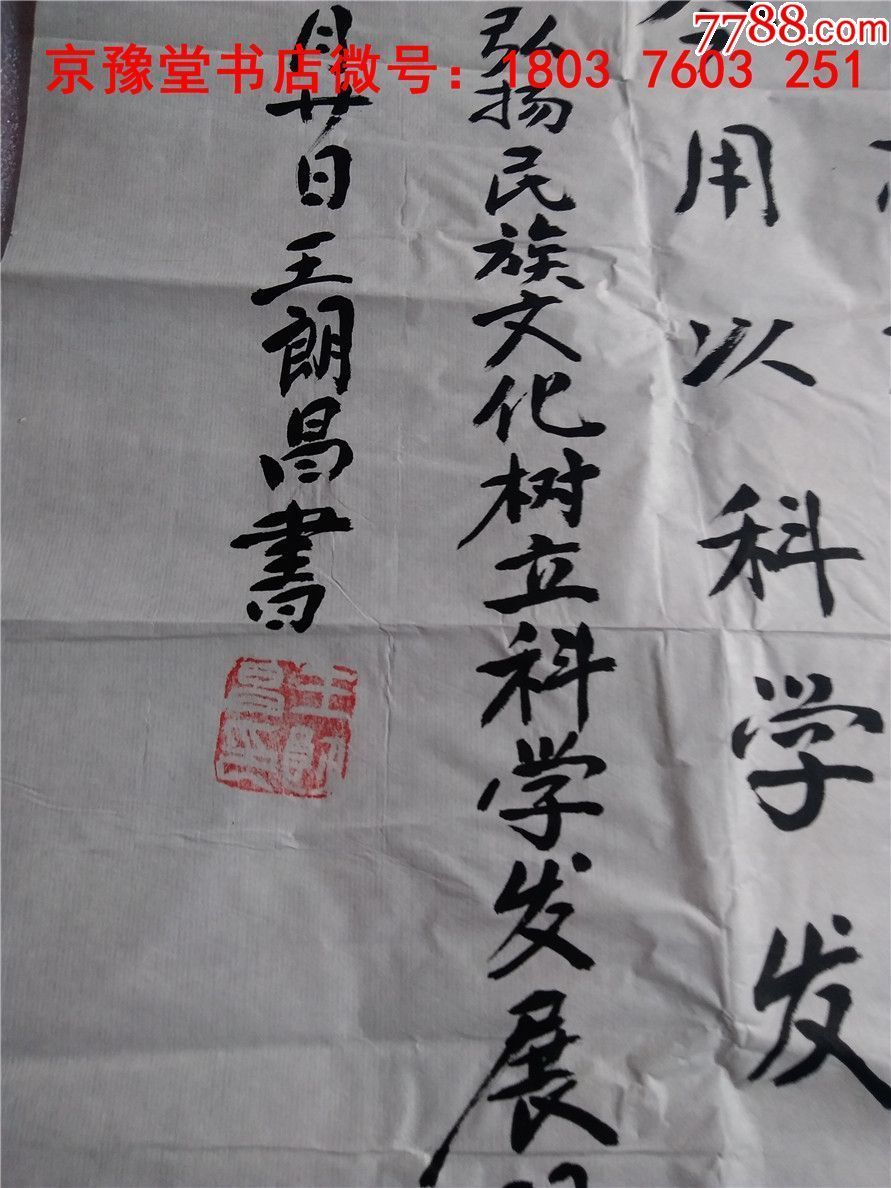 7788.com
京豫堂书店微号：1803 7603 251
用以科学发
弘扬民族文化树立科学发展
月廿日王朗昌書
王朗昌印